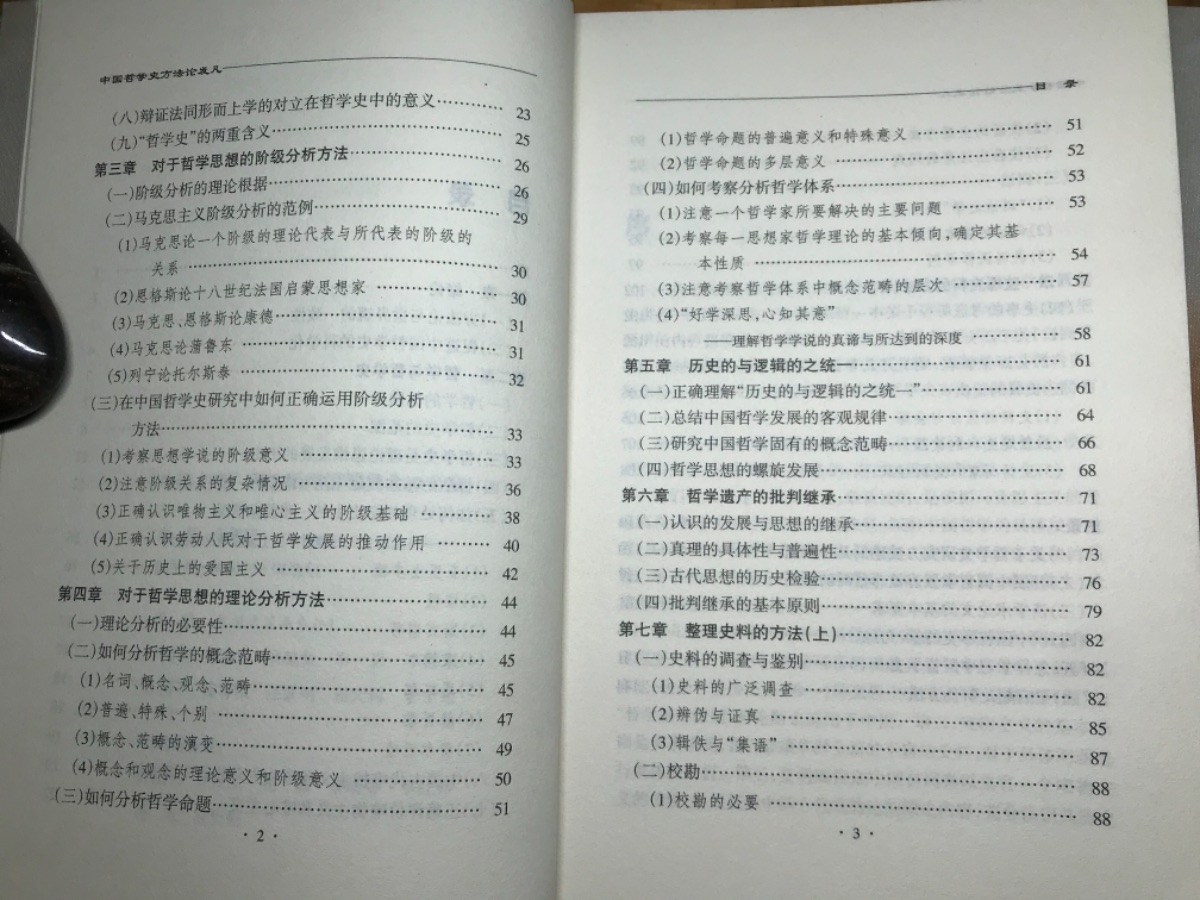 中国哲学史方法论发凡
(八)辩证法同形而上学的对立在哲学史中的意义………… 23
(九)“哲学史”的两重含义………………………… 25
第三章 对于哲学思想的阶级分析方法………………… 26
(一)阶级分析的理论根据………………………… 26
(二)马克思主义阶级分析的范例…………………… 29
(1)马克思论一个阶级的理论代表与所代表的阶级的
关系 ………………………………… 30
(2)恩格斯论十八世纪法国启蒙思想家 …………… 30
(3)马克思、恩格斯论康德………………………… 31
(4)马克思论蒲鲁东 ……………………………… 31
(5)列宁论托尔斯泰 ……………………………… 32
(三)在中国哲学史研究中如何正确运用阶级分析
方法…………………………………… 33
(1)考察思想学说的阶级意义 …………………… 33
(2)注意阶级关系的复杂情况 …………………… 36
(3)正确认识唯物主义和唯心主义的阶级基础 ……… 38
(4)正确认识劳动人民对于哲学发展的推动作用 ……… 40
(5)关于历史上的爱国主义 ……………………… 42
第四章 对于哲学思想的理论分析方法………………… 44
(一)理论分析的必要性…………………………… 44
(二)如何分析哲学的概念范畴……………………… 45
(1)名词、概念、观念、范畴………………………… 45
(2)普遍、特殊、个别 ……………………………… 47
(3)概念、范畴的演变……………………………… 49
(4)概念和观念的理论意义和阶级意义 …………… 50
(三)如何分析哲学命题…………………………… 51
· 2 ·
目 录
(1)哲学命题的普遍意义和特殊意义 ……………… 51
(2)哲学命题的多层意义 ………………………… 52
(四)如何考察分析哲学体系………………………… 53
(1)注意一个哲学家所要解决的主要问题 ………… 53
(2)考察每一思想家哲学理论的基本倾向,确定其基
本性质 ………………………………… 54
(3)注意考察哲学体系中概念范畴的层次 ………… 57
(4)“好学深思,心知其意”
——理解哲学学说的真谛与所达到的深度 ………… 58
第五章 历史的与逻辑的之统一………………………… 61
(一)正确理解“历史的与逻辑的之统一”…………… 61
(二)总结中国哲学发展的客观规律………………… 64
(三)研究中国哲学固有的概念范畴………………… 66
(四)哲学思想的螺旋发展………………………… 68
第六章 哲学遗产的批判继承…………………………… 71
(一)认识的发展与思想的继承……………………… 71
(二)真理的具体性与普遍性………………………… 73
(三)古代思想的历史检验………………………… 76
(四)批判继承的基本原则………………………… 79
第七章 整理史料的方法(上)…………………………… 82
(一)史料的调查与鉴别…………………………… 82
(1)史料的广泛调查 ……………………………… 82
(2)辨伪与证真 ………………………………… 85
(3)辑佚与“集语” ……………………………… 87
(二)校勘………………………………………… 88
(1)校勘的必要 ………………………………… 88
· 3 ·